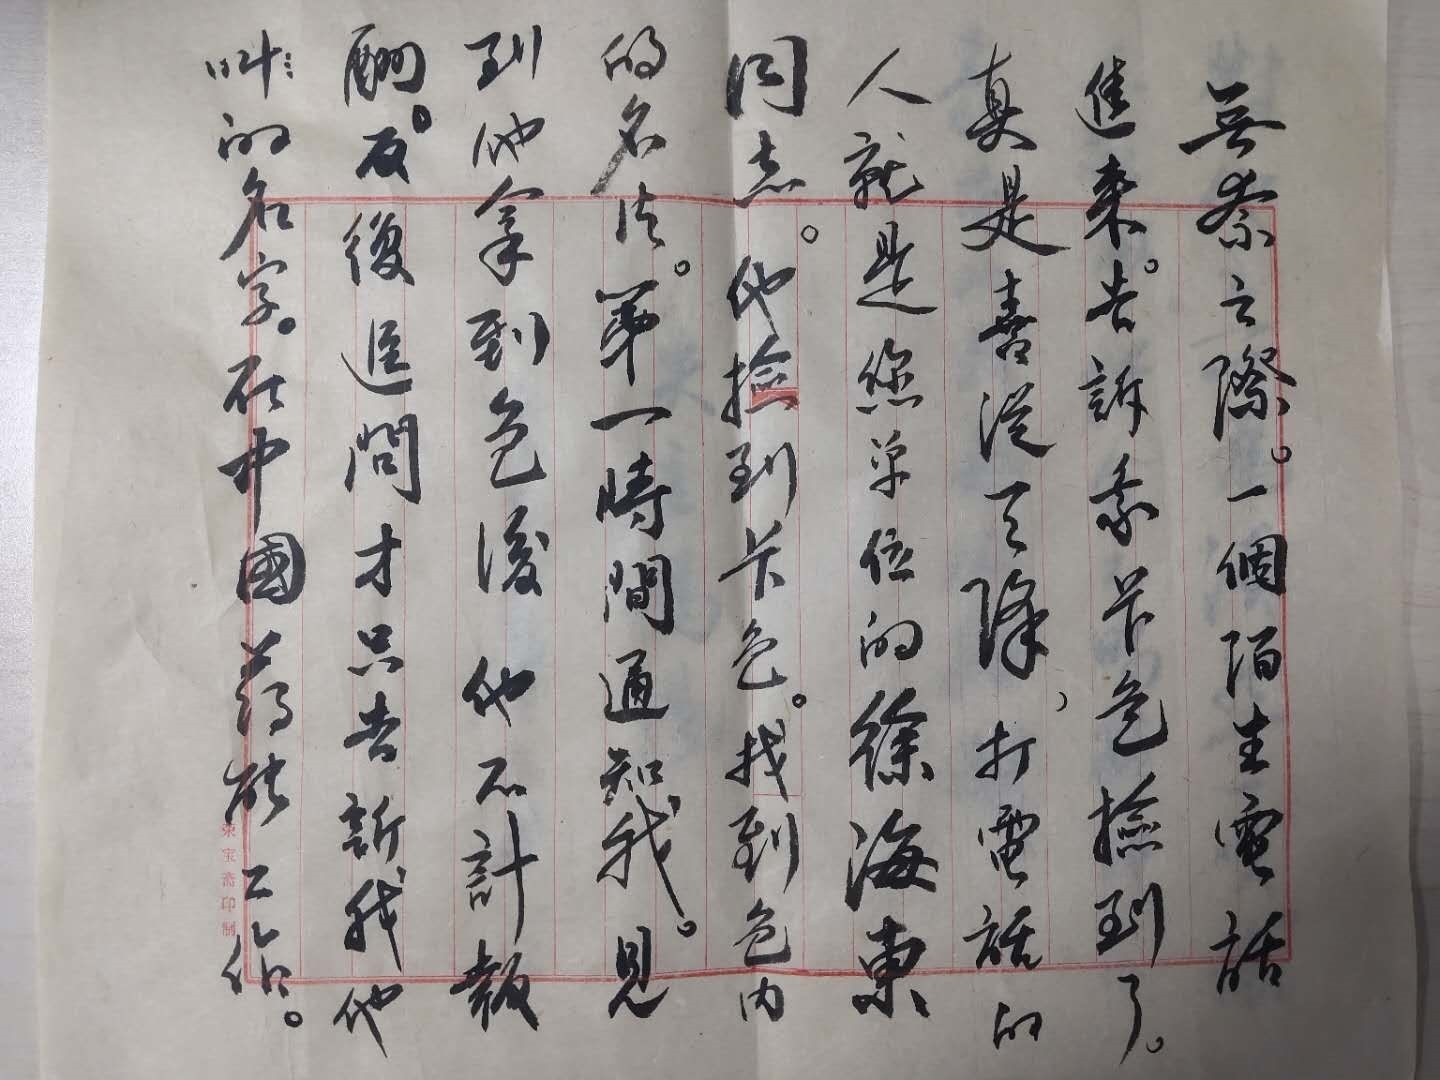 無奈之際。一個陌生電話
進來。告訴我卡包撿到了。
真是喜從天降、打電話的
人就是您單位的徐海東
同志。他撿到卡包。找到包内
的名片。第一時間通知我。見
到他拿到包後他不計報
酬。反復追問才只告訴我他
叫…的名字。在中國药材工作。
榮宝斋印制